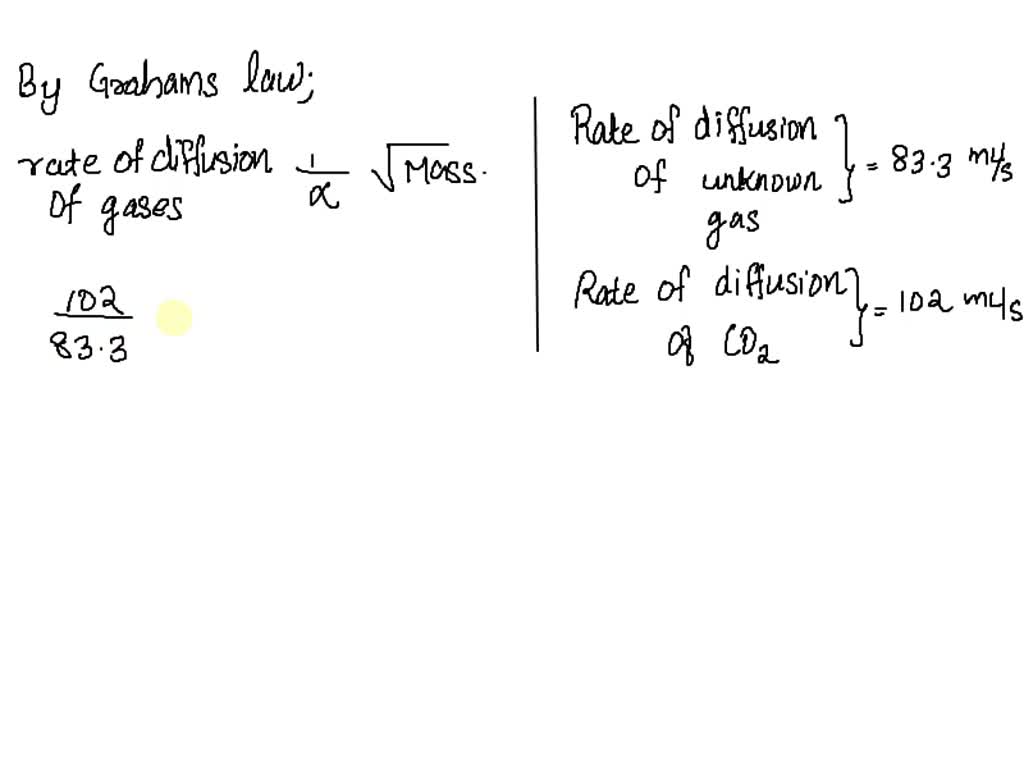 By Grahams law;
rate of diffusion 1/α √Mass.
of gases
102
83.3
Rate of diffusion
of unknown
gas
= 83.3 m/s
Rate of diffusion
of CO2
= 102 m/s